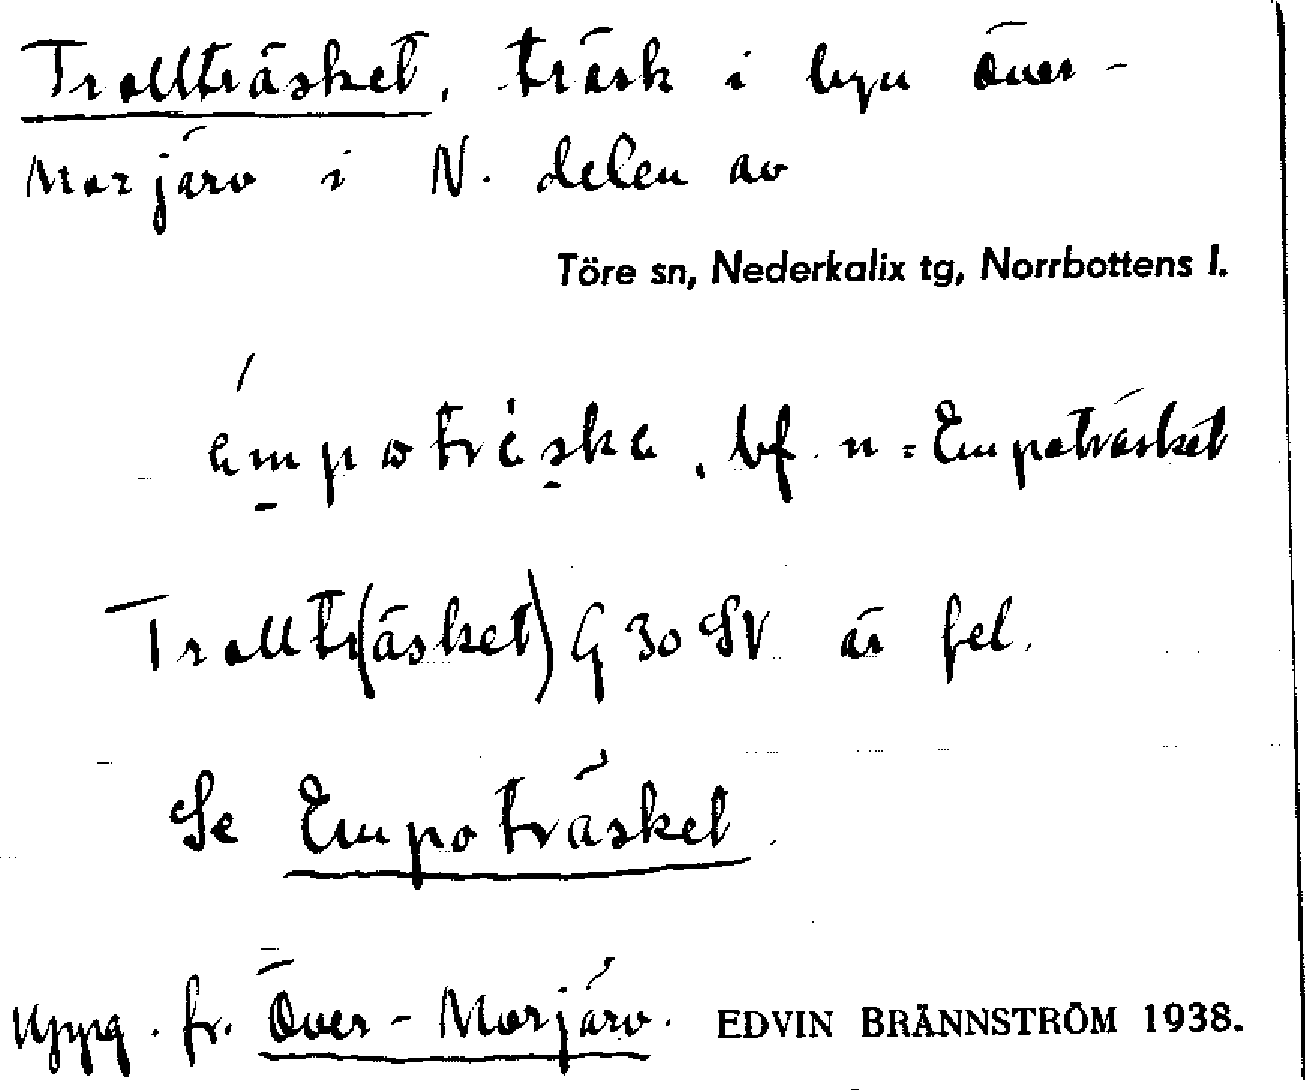 Trollträsket, träsk i byn Över-
Morjärv i N. delen av
Töre sn, Nederkalix tg, Norrbottens l.
bf. n = Empoträsket
Trolltr(äsket) G 30 SV är fel.
Se Empoträsket.
Uppg. fr. Över-Morjärv. EDVIN BRÄNNSTRÖM 1938.